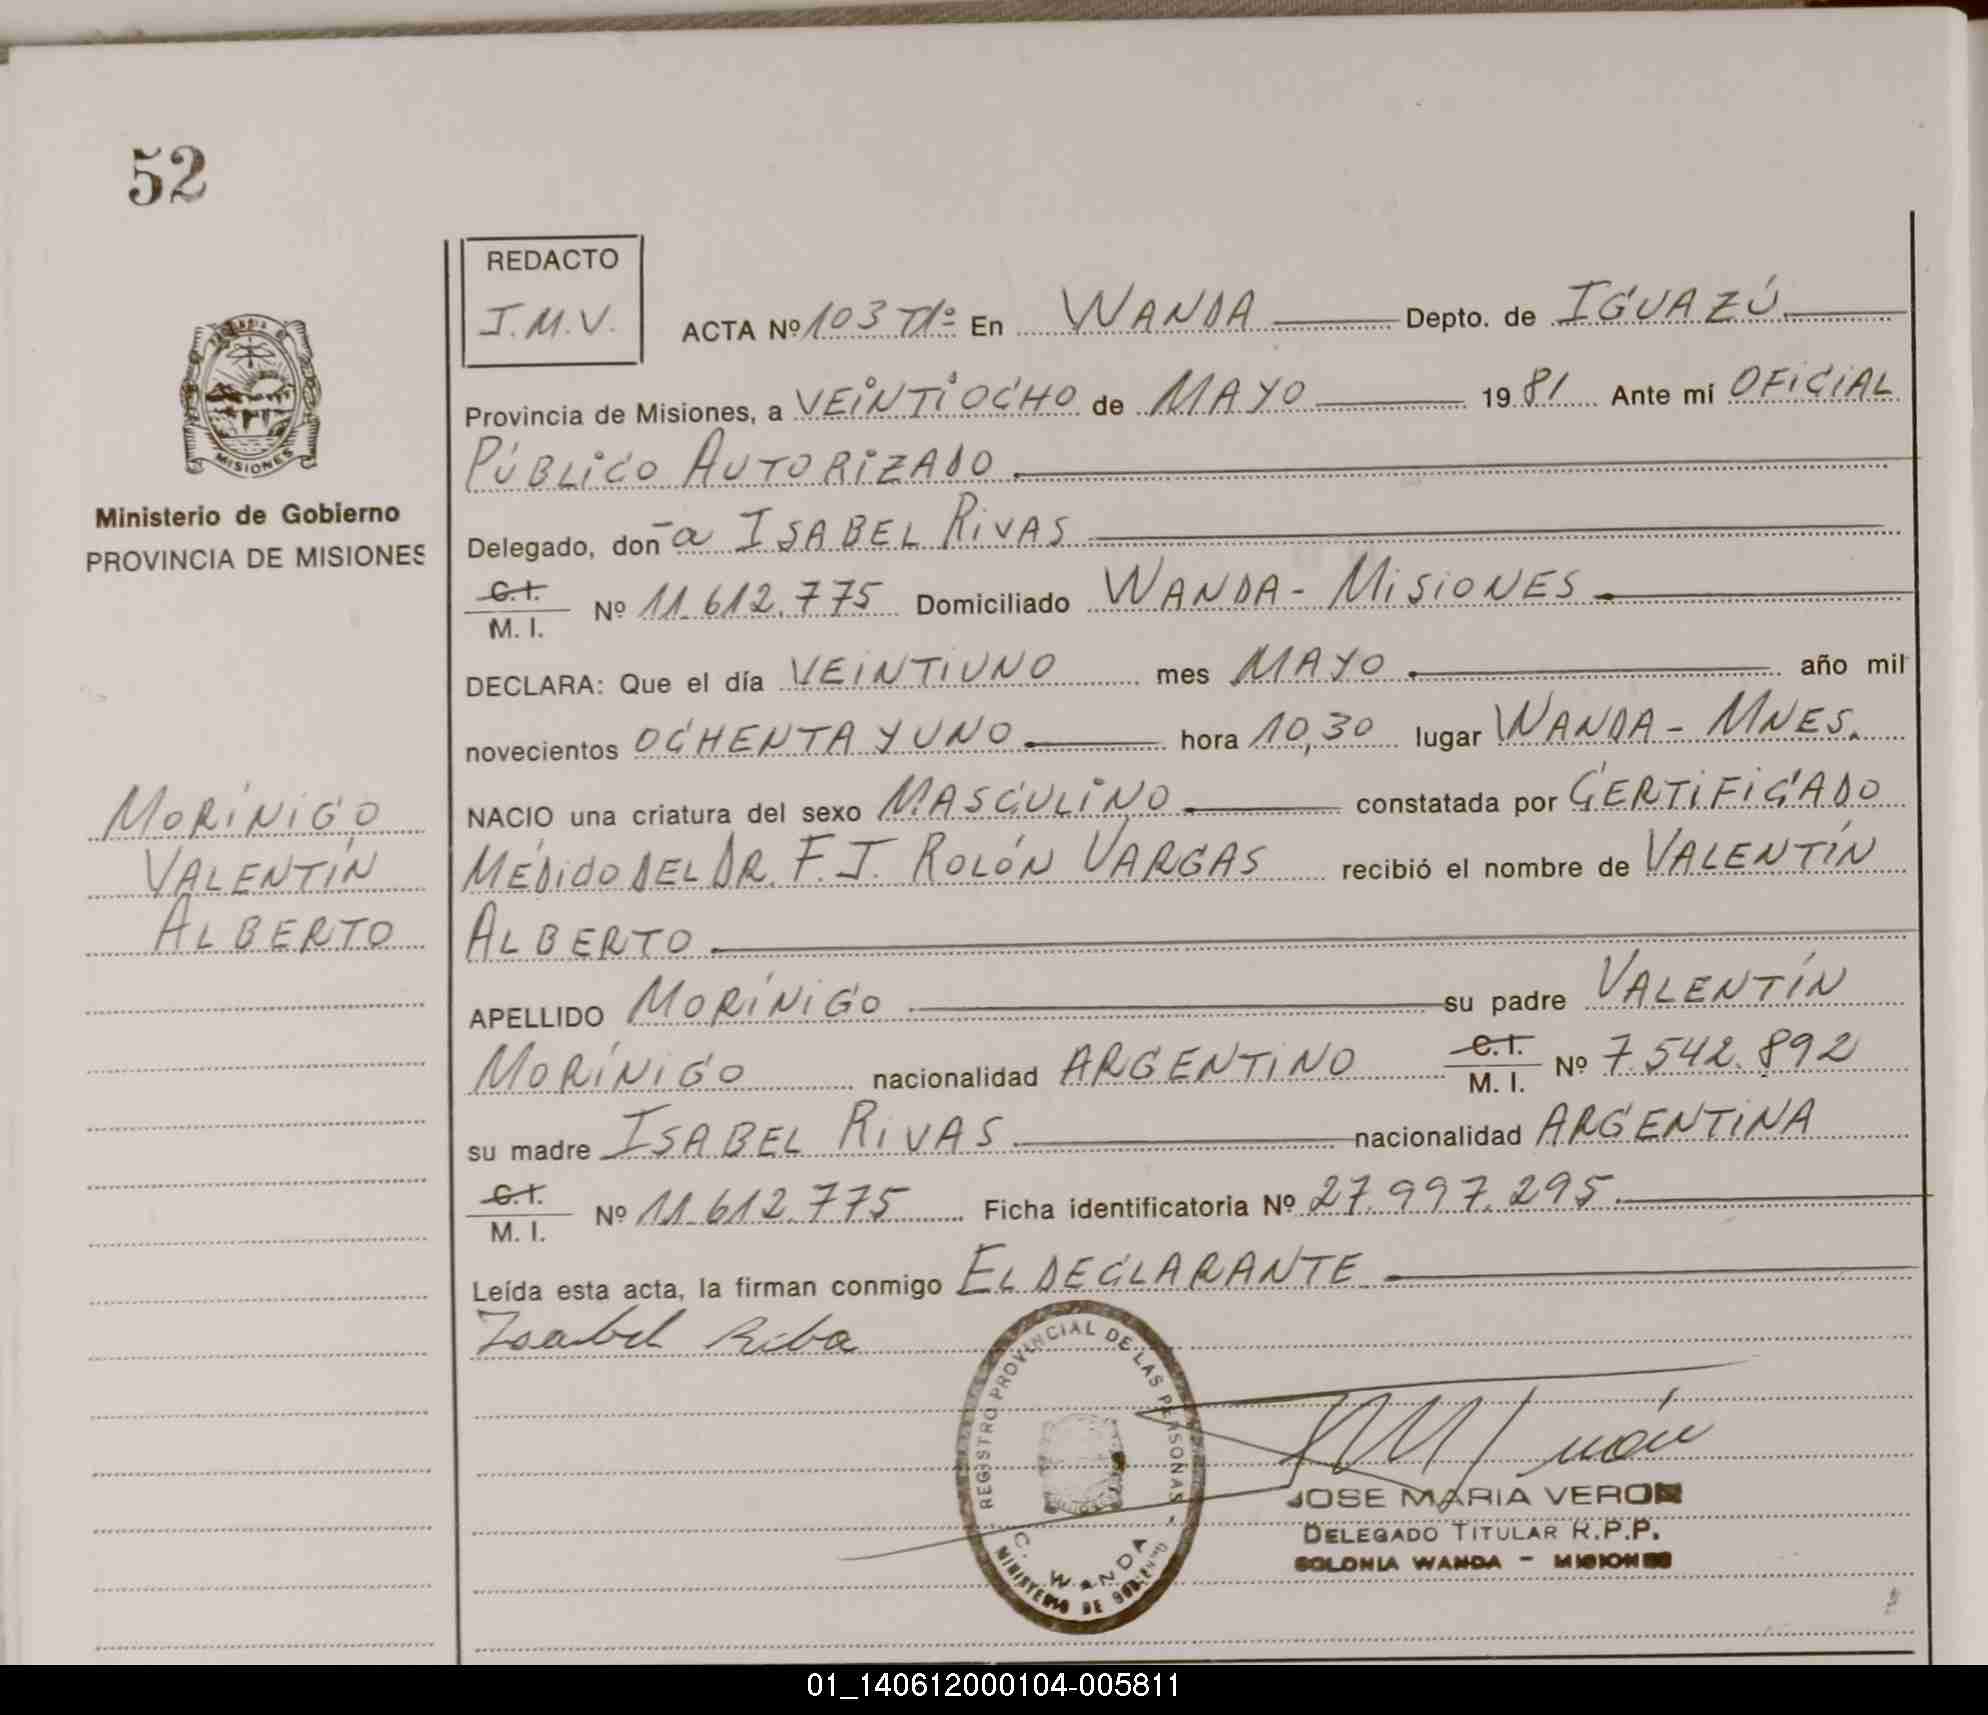 52
REDACTO
J.M.V.
ACTA Nº 103 Tº1º En WANDA Depto. de IGUAZÚ
Provincia de Misiones, a VEINTIOCHO de MAYO 1981 Ante mí OFICIAL
PÚBLICO AUTORIZADO
Delegado, don~a ISABEL RIVAS
C.I.
M. I. Nº 11.612.775 Domiciliado WANDA - MISIONES
DECLARA: Que el día VEINTIUNO mes MAYO año mil
novecientos OCHENTA Y UNO hora 10,30 lugar WANDA - MNES.
NACIO una criatura del sexo MASCULINO constatada por CERTIFICADO
MÉDIDO DEL DR. F. J. ROLÓN VARGAS recibió el nombre de VALENTÍN
ALBERTO
APELLIDO MORÍNIGO su padre VALENTÍN
MORÍNIGO nacionalidad ARGENTINO C.I.
M. I. Nº 7.542.892
su madre ISABEL RIVAS nacionalidad ARGENTINA
C.I.
M. I. Nº 11.612.775 Ficha identificatoria Nº 27.997.295
Leída esta acta, la firman conmigo EL DECLARANTE
Isabel Riba
MISIONES
Ministerio de Gobierno
PROVINCIA DE MISIONES
MORÍNIGO
VALENTÍN
ALBERTO
REGISTRO PROVINCIAL DE LAS PERSONAS -
C. WANDA
MINISTERIO DE GOBIERNO
JOSE MARIA VERON
DELEGADO TITULAR R.P.P.
COLONIA WANDA - MISIONES
01_140612000104-005811